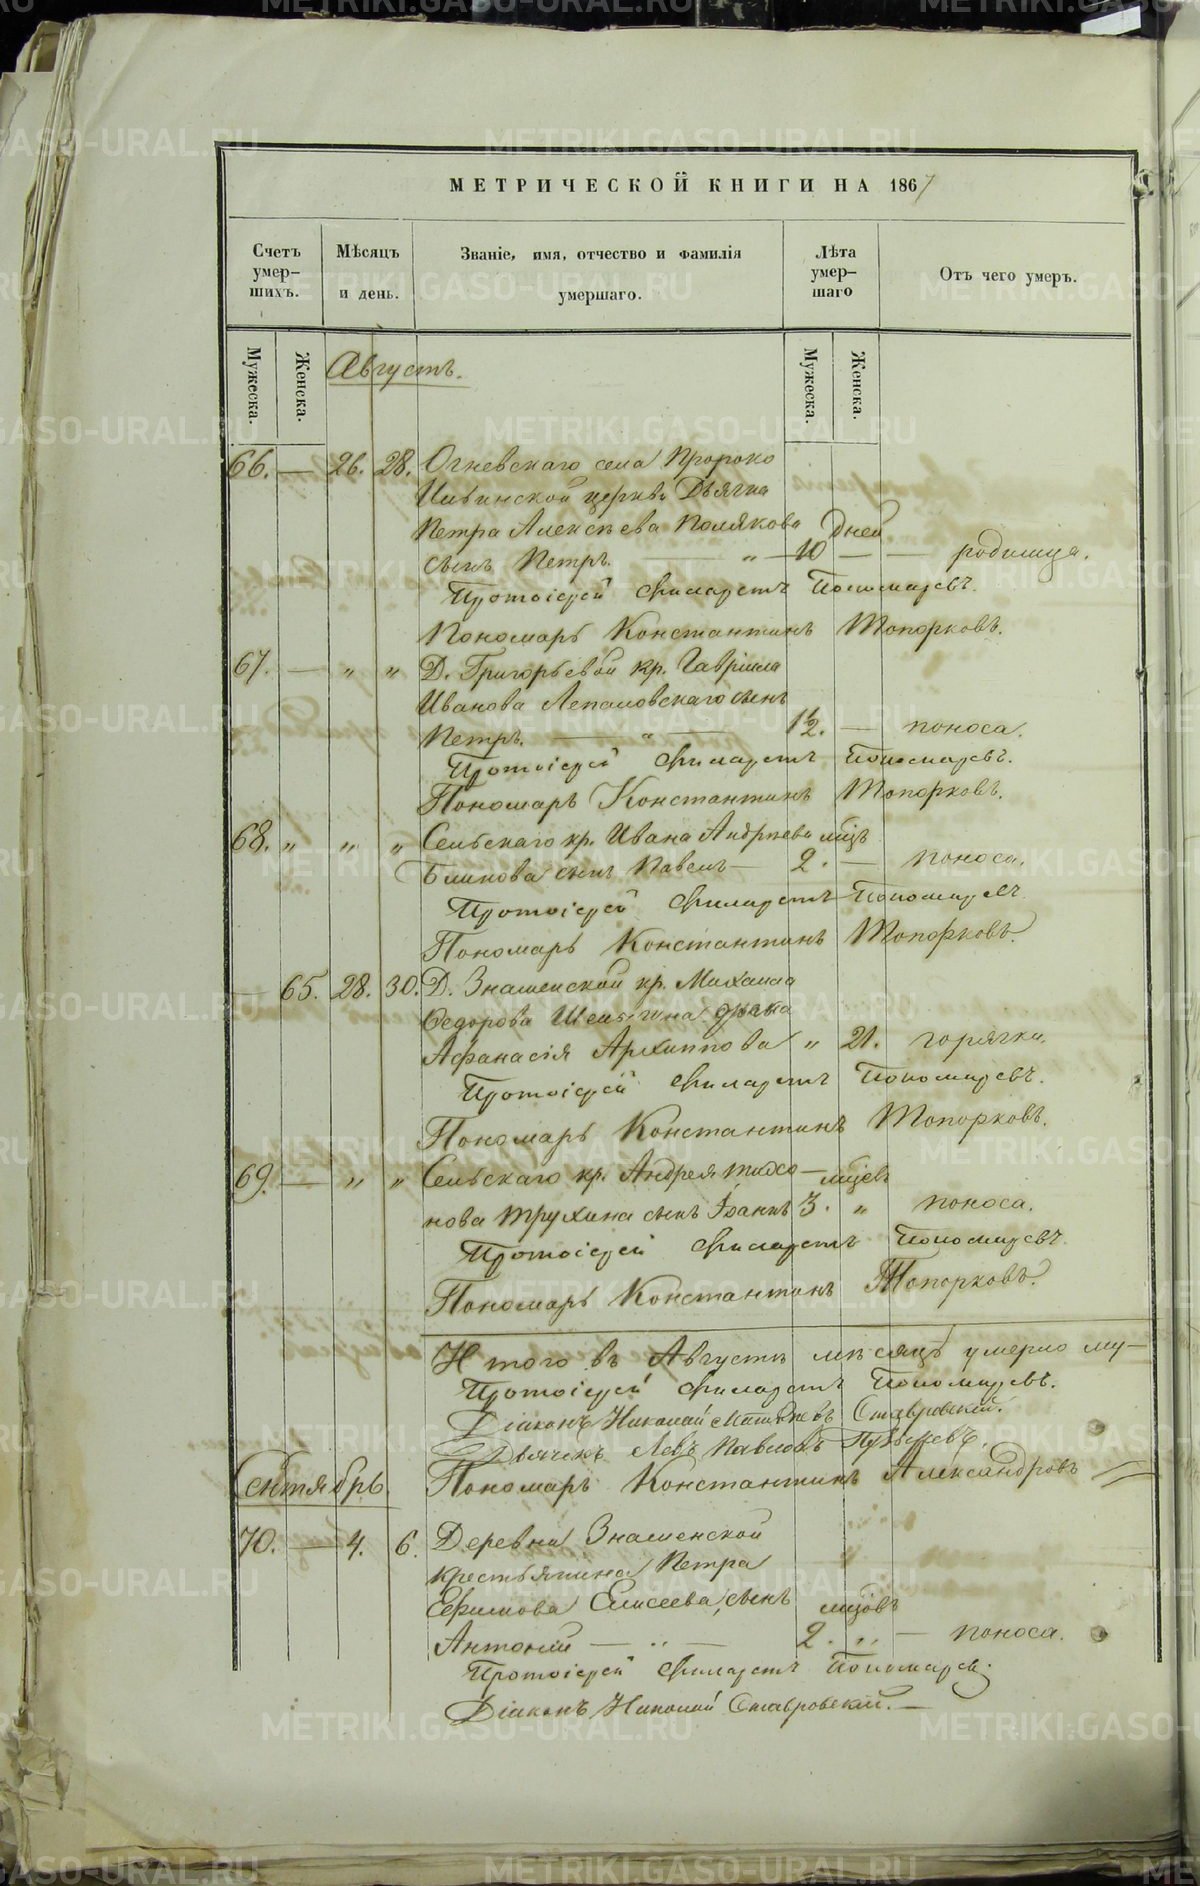 МЕТРИЧЕСКОЙ КНИГИ НА 1867
Счетъ умер-шихъ.
Мѣсяцъ и день.
Званіе, имя, отчество и фамилія умершаго.
Лѣта умер-шаго
Отъ чего умеръ.
Мужеска.
Женска.
Мужеска.
Женска.
Августъ.
66. — 26. 28. Огневскаго села Пророко
Ильинской церкви Дьячка
Петра Алексѣева Полякова Дней
сынъ Петръ. — „ — 10 — — родимца.
Протоіерей Филаретъ Пономаревъ.
Пономарь Константинъ Топорковъ.
67. — „ „ Д. Григорьевой кр. Гавріила
Иванова Лепаловскаго сынъ
Петръ. — „ — 1½. — поноса.
Протоіерей Филаретъ Пономаревъ.
Пономарь Константинъ Топорковъ.
68. „ „ „ Сельскаго кр. Ивана Андреева мѣц
Блинова сынъ Павелъ — 2. — поноса.
Протоіерей Филаретъ Пономаревъ
Пономарь Константинъ Топорковъ.
— 65. 28. 30. Д. Знаменской кр. Михаила
Федорова Шелыгина жена
Афанасія Архиппова „ 21. горячки.
Протоіерей Филаретъ Пономаревъ.
Пономарь Константинъ Топорковъ.
69. — „ „ Сельскаго кр. Андрея Тихо- мѣцевъ
нова Трухина сынъ Іоаннъ 3. „ поноса.
Протоіерей Филаретъ Пономаревъ.
Пономарь Константинъ Топорковъ.
Итого въ Августѣ мѣсяцѣ умерло му-
Протоіерей Филаретъ Пономаревъ.
Діаконъ Николай Ставровскій.
Дьячекъ Левъ Павловъ
Пономарь Константинъ Александровъ
Сентябрь
70. — 4. 6. Деревни Знаменской
крестьянина Петра
Ефимова Елисеева, сынъ мѣцовъ
Антоній — „ — 2. „ — поноса.
Протоіерей Филаретъ Пономаревъ.
Діаконъ Николай Ставровскій. —
METRIKI.GASO-URAL.RU